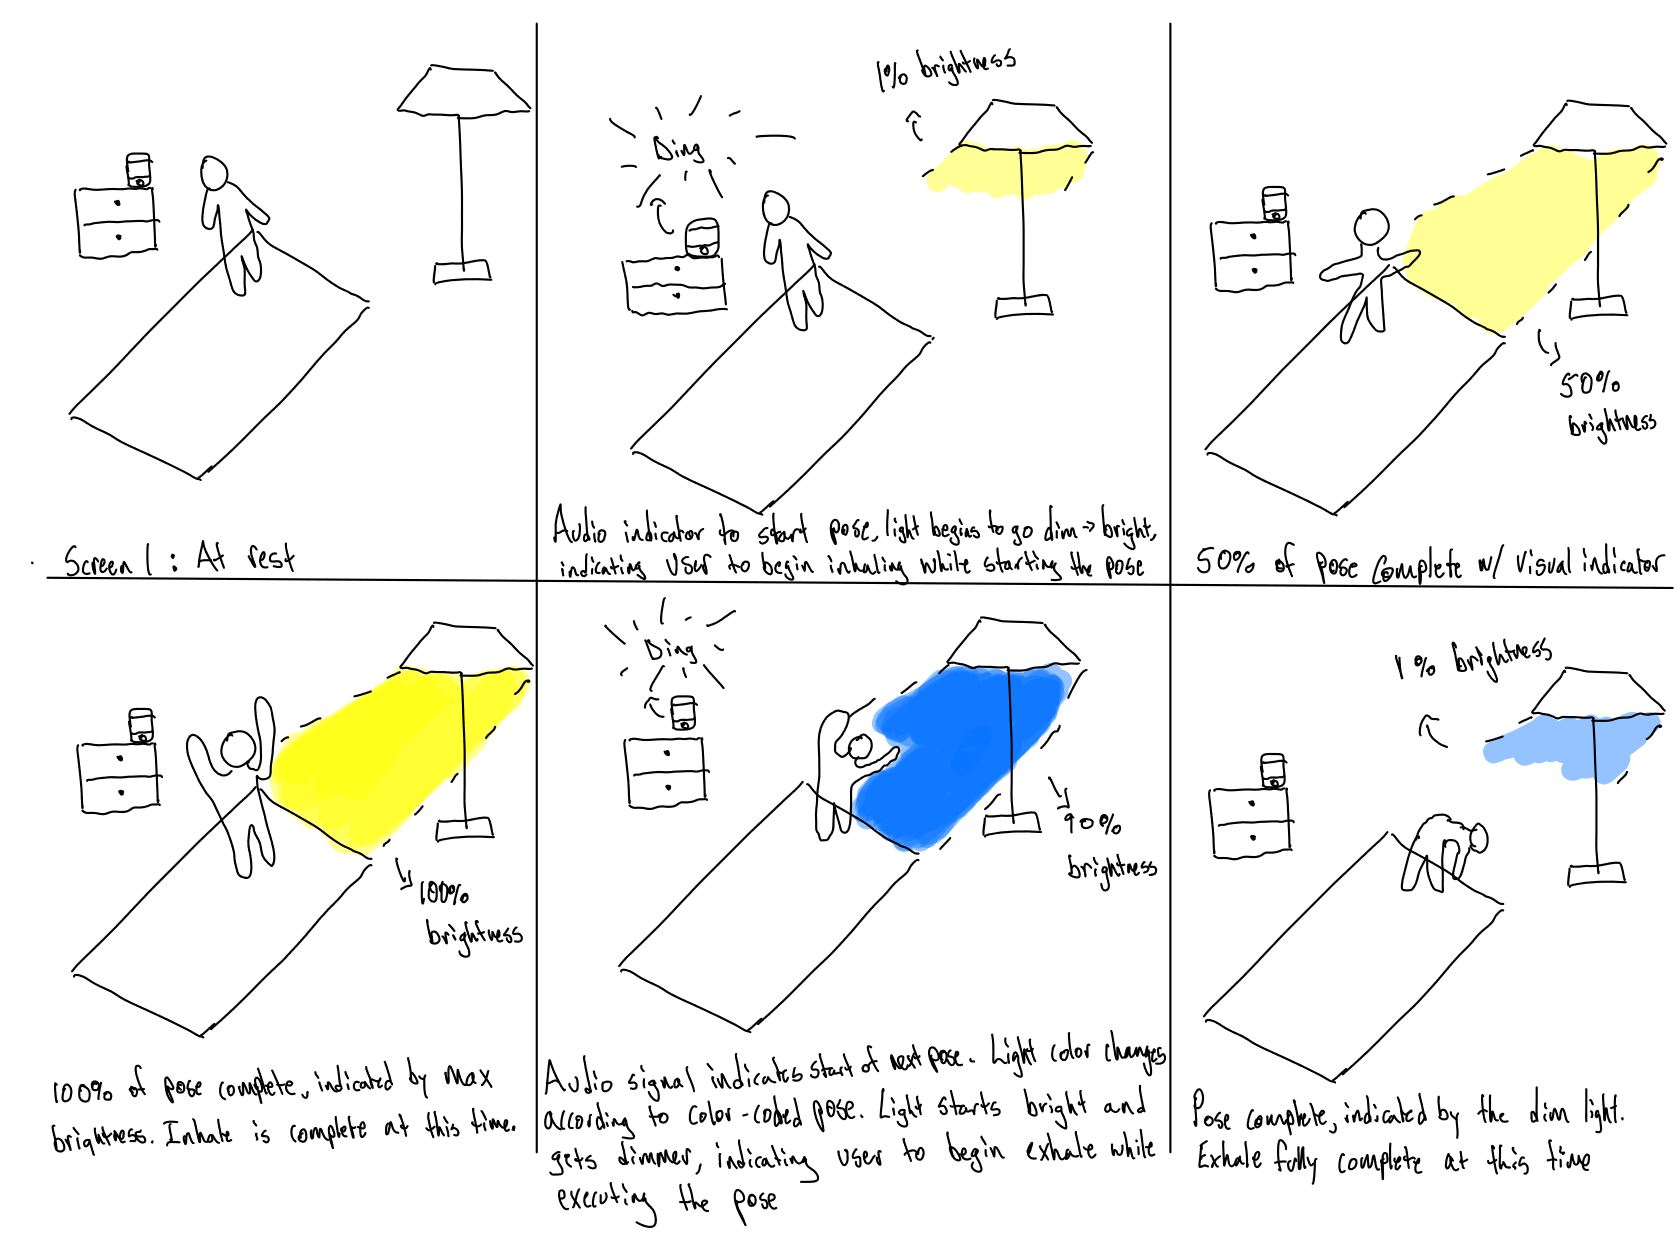 Screen 1 : At rest
Ding
1% brightness
Audio indicator to start pose, light begins to go dim → bright,
indicating user to begin inhaling while starting the pose
50%
brightness
50% of pose complete w/ visual indicator
100%
brightness
100% of pose complete, indicated by max
brightness. Inhale is complete at this time.
Ding
90%
brightness
Audio signal indicates start of next pose. Light color changes
according to color-coded pose. Light starts bright and
gets dimmer, indicating user to begin exhale while
executing the pose
1% brightness
Pose complete, indicated by the dim light.
Exhale fully complete at this time